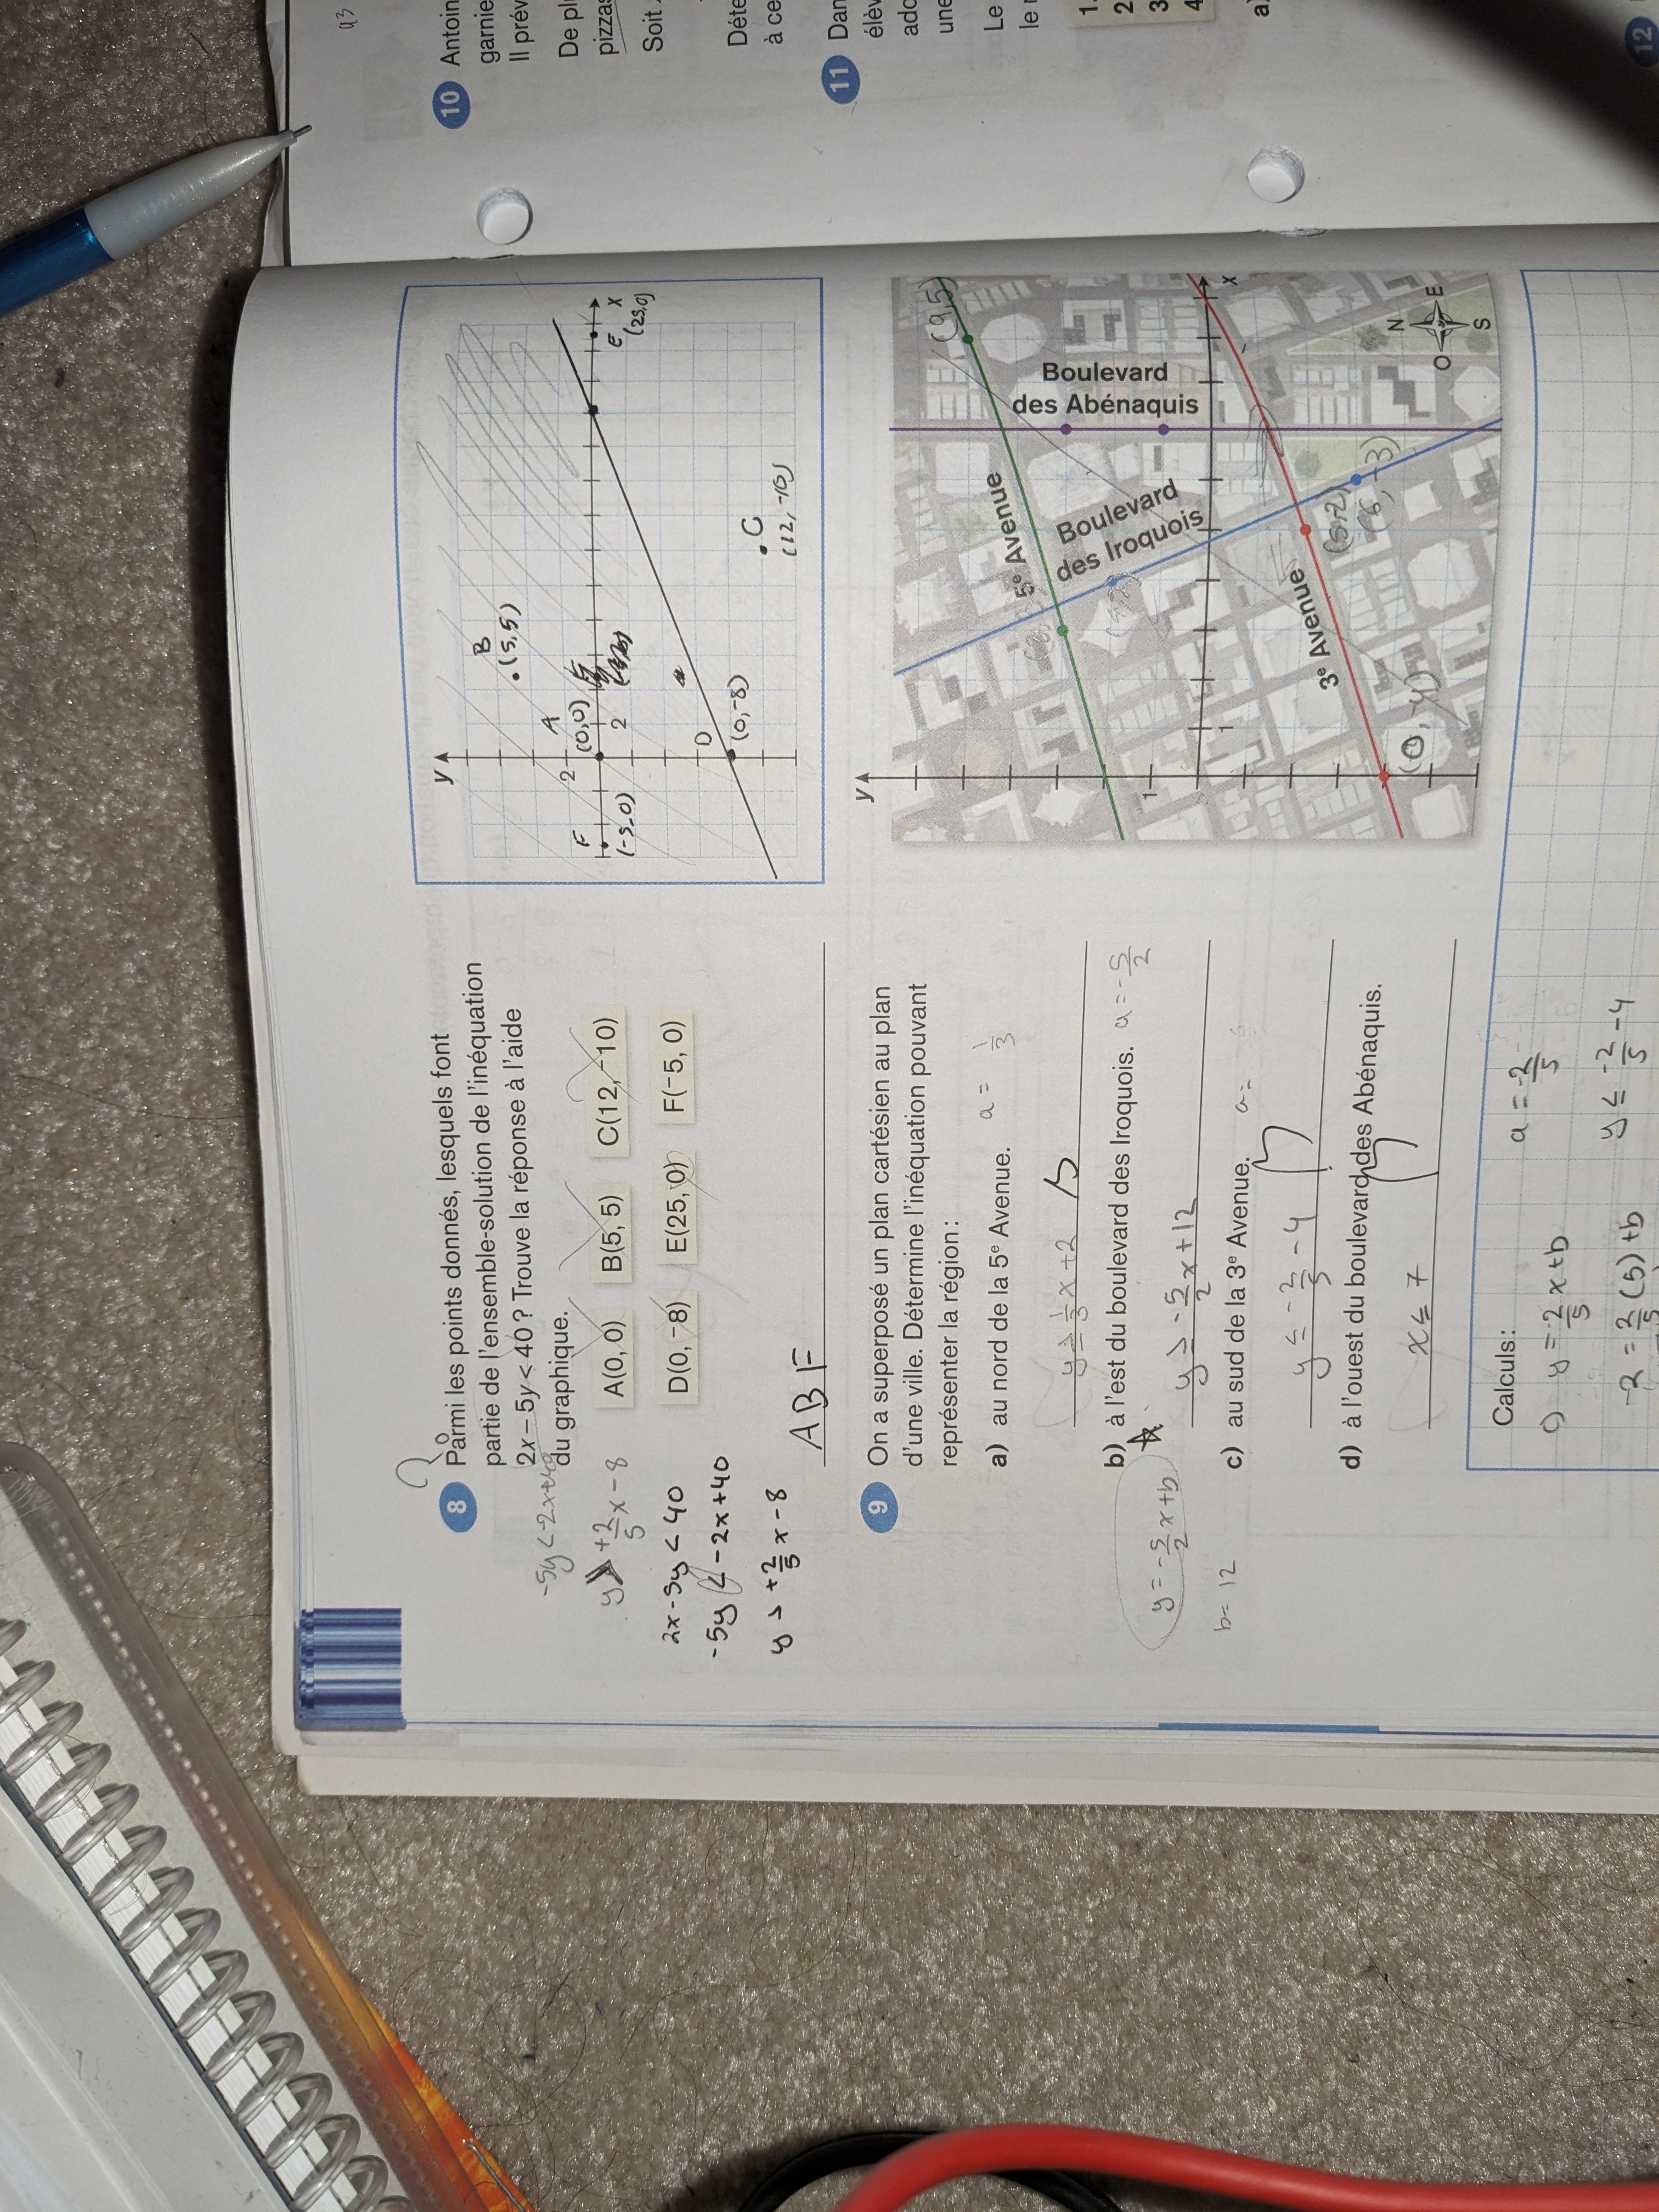 8 Parmi les points donnés, lesquels font
partie de l'ensemble-solution de l'inéquation
2x – 5y < 40 ? Trouve la réponse à l'aide
du graphique.
-5y < -2x+40
y > +2/5 x - 8
A(0, 0) B(5, 5) C(12, –10)
D(0, –8) E(25, 0) F(–5, 0)
2x - 5y < 40
-5y < -2x+40
y > +2/5 x - 8
A B F
y
B
(5,5)
A
(0,0)
2
2
F
(-5,0)
E
(25,0)
x
D
(0,-8)
C
(12,-10)
9 On a superposé un plan cartésien au plan
d'une ville. Détermine l'inéquation pouvant
représenter la région :
a) au nord de la 5e Avenue. a = 1/3
y ≥ 1/3 x+2
b) à l'est du boulevard des Iroquois. a = -5/2
y = -5/2 x+b
y > -5/2 x+12
b= 12
c) au sud de la 3e Avenue. a=
y ≤ -2/5 - 4
d) à l'ouest du boulevard des Abénaquis.
x ≤ 7
y
(9,5)
5e Avenue
Boulevard
des Abénaquis
Boulevard
des Iroquois
1
1
x
3e Avenue
(6,-3)
(0,-4)
N
O E
S
Calculs :
c) y = -2/5 x+b a = -2/5
-2 = 2/5 (5)+b y ≤ -2/5 - 4
10 Antoin
garnie
Il prév
De pl
pizzas
Soit
Déte
à ce
11 Dan
élèv
ado
une
Le
le r
1.
2
3
4
a)
12